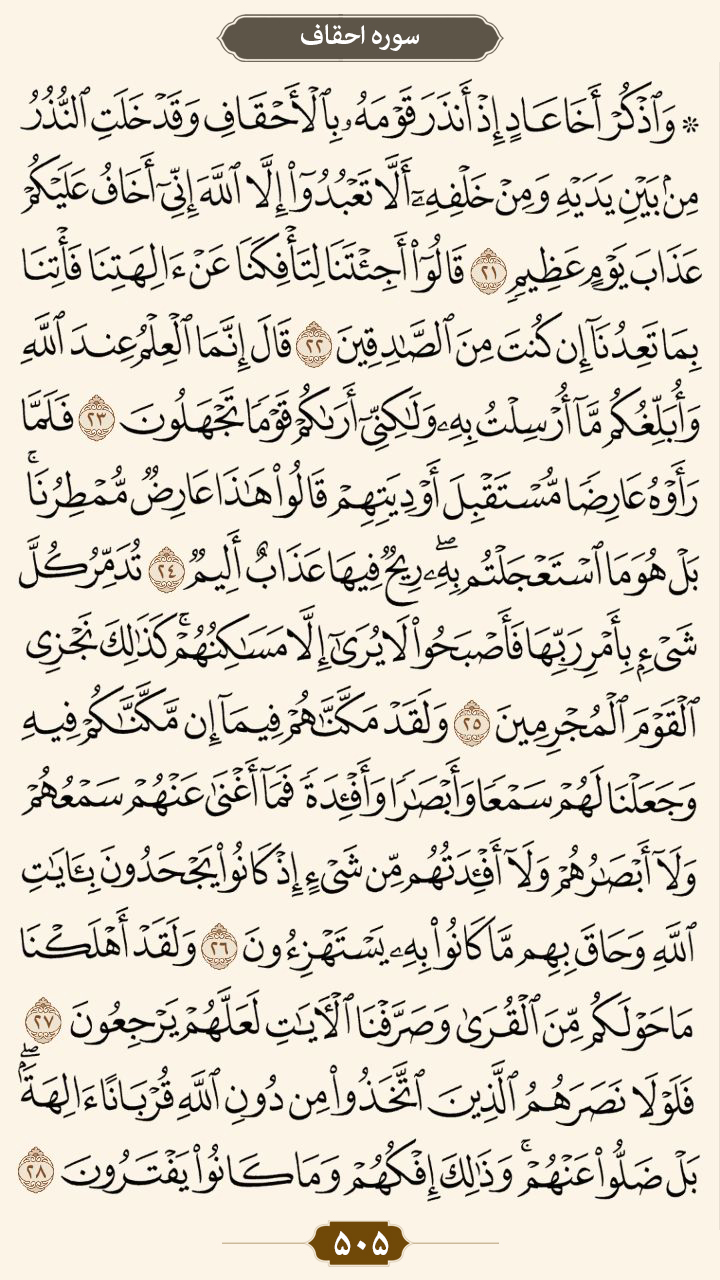 سوره احقاف
* وَٱذْكُرْ أَخَا عَادٍ إِذْ أَنذَرَ قَوْمَهُۥ بِٱلْأَحْقَافِ وَقَدْ خَلَتِ ٱلنُّذُرُ
مِنۢ بَيْنِ يَدَيْهِ وَمِنْ خَلْفِهِۦٓ أَلَّا تَعْبُدُوٓا۟ إِلَّا ٱللَّهَ إِنِّىٓ أَخَافُ عَلَيْكُمْ
عَذَابَ يَوْمٍ عَظِيمٍ ٢١ قَالُوٓا۟ أَجِئْتَنَا لِتَأْفِكَنَا عَنْ ءَالِهَتِنَا فَأْتِنَا
بِمَا تَعِدُنَآ إِن كُنتَ مِنَ ٱلصَّٰدِقِينَ ٢٢ قَالَ إِنَّمَا ٱلْعِلْمُ عِندَ ٱللَّهِ
وَأُبَلِّغُكُم مَّآ أُرْسِلْتُ بِهِۦ وَلَٰكِنِّىٓ أَرَىٰكُمْ قَوْمًا تَجْهَلُونَ ٢٣ فَلَمَّا
رَأَوْهُ عَارِضًا مُّسْتَقْبِلَ أَوْدِيَتِهِمْ قَالُوا۟ هَٰذَا عَارِضٌ مُّمْطِرُنَاۚ
بَلْ هُوَ مَا ٱسْتَعْجَلْتُم بِهِۦۖ رِيحٌ فِيهَا عَذَابٌ أَلِيمٌ ٢٤ تُدَمِّرُ كُلَّ
شَىْءٍۭ بِأَمْرِ رَبِّهَا فَأَصْبَحُوا۟ لَا يُرَىٰٓ إِلَّا مَسَٰكِنُهُمْۚ كَذَٰلِكَ نَجْزِى
ٱلْقَوْمَ ٱلْمُجْرِمِينَ ٢٥ وَلَقَدْ مَكَّنَّٰهُمْ فِيمَآ إِن مَّكَّنَّٰكُمْ فِيهِ
وَجَعَلْنَا لَهُمْ سَمْعًا وَأَبْصَٰرًا وَأَفْـِٔدَةً فَمَآ أَغْنَىٰ عَنْهُمْ سَمْعُهُمْ
وَلَآ أَبْصَٰرُهُمْ وَلَآ أَفْـِٔدَتُهُم مِّن شَىْءٍ إِذْ كَانُوا۟ يَجْحَدُونَ بِـَٔايَٰتِ
ٱللَّهِ وَحَاقَ بِهِم مَّا كَانُوا۟ بِهِۦ يَسْتَهْزِءُونَ ٢٦ وَلَقَدْ أَهْلَكْنَا
مَا حَوْلَكُم مِّنَ ٱلْقُرَىٰ وَصَرَّفْنَا ٱلْـَٔايَٰتِ لَعَلَّهُمْ يَرْجِعُونَ ٢٧
فَلَوْلَا نَصَرَهُمُ ٱلَّذِينَ ٱتَّخَذُوا۟ مِن دُونِ ٱللَّهِ قُرْبَانًا ءَالِهَةَۢۖ
بَلْ ضَلُّوا۟ عَنْهُمْۚ وَذَٰلِكَ إِفْكُهُمْ وَمَا كَانُوا۟ يَفْتَرُونَ ٢٨
۵۰۵